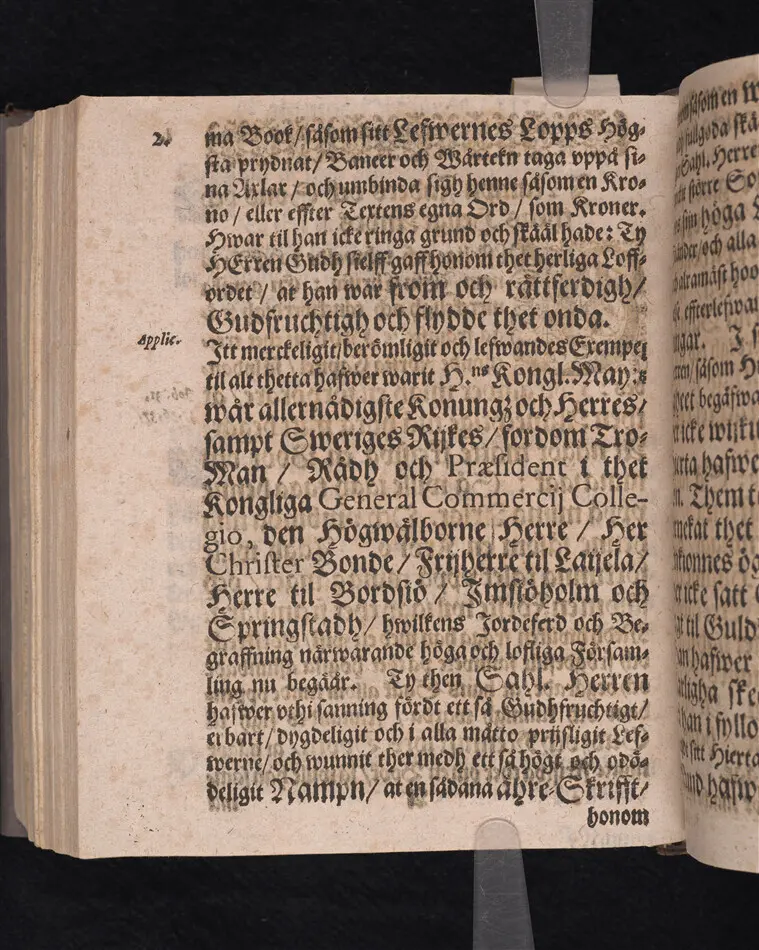 2. ma Book/såsom sitt Lefwernes Lopps Hög-
sta prydnat/Baneer och Wårtekn taga vppå si-
na Axlar/och umbinda sigh henne såsom en Kro-
no/eller effter Textens egna Ord/som Kroner.
Hwar til han icke ringa grund och skääl hade: Ty
HErren Gudh sielff gaff honom thet herliga Loff-
ordet/at han war from och rättferdigh/
Gudfruchtigh och flydde thet onda.
Applic. Itt merckeligit/berömligit och lefwandes Exempel
til alt thetta hafwer warit H.ns Kongl. May:s
wår allernådigste Konungz och Herres/
sampt Sweriges Rijkes/fordom Tro-
Man/Rådh och Præsident i thet
Kongliga General Commercij Colle-
gio, den Högwälborne Herre/Her
Christer Bonde/Frijherre til Laijela/
Herre til Bordsiö/Imsiöholm och
Springstadh/hwilkens Jordeferd och Be-
graffning närwarande höga och lofliga Försam-
ling nu begåår. Ty then Sahl. Herren
hafwer vthi sanning fördt ett så Gudhfruchtigt/
erbart/dygdeligit och i alla måtto prijsligit Lef-
werne/och wunnit ther medh ett så högt och odö-
deligit Nampn/at en sådana ähre-Skrifft/
honom
såsom en
Sahl. Herre
större
höga
och alla
efterlefwa
såsom
begåfwa
icke
hafwer
Them
thet
icke satt
til Guld
hafwer
i
sitt Hierta